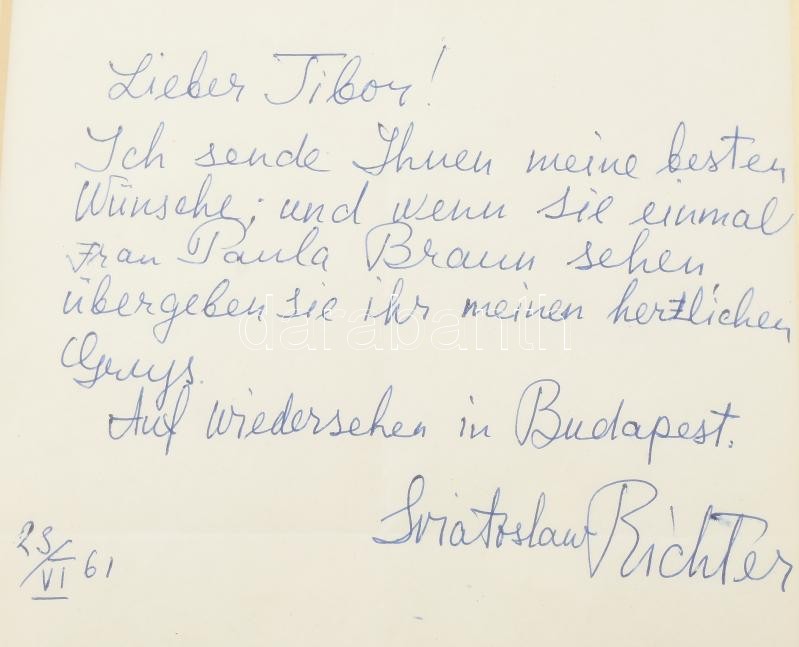 Lieber Tibor!
Ich sende Ihnen meine besten
Wünsche; und wenn sie einmal
Frau Paula Braun sehen,
übergeben sie ihr meinen herzlichen
Gruß.
Auf wiedersehen in Budapest.
Sviatoslaw Richter
VI 61
darabanth